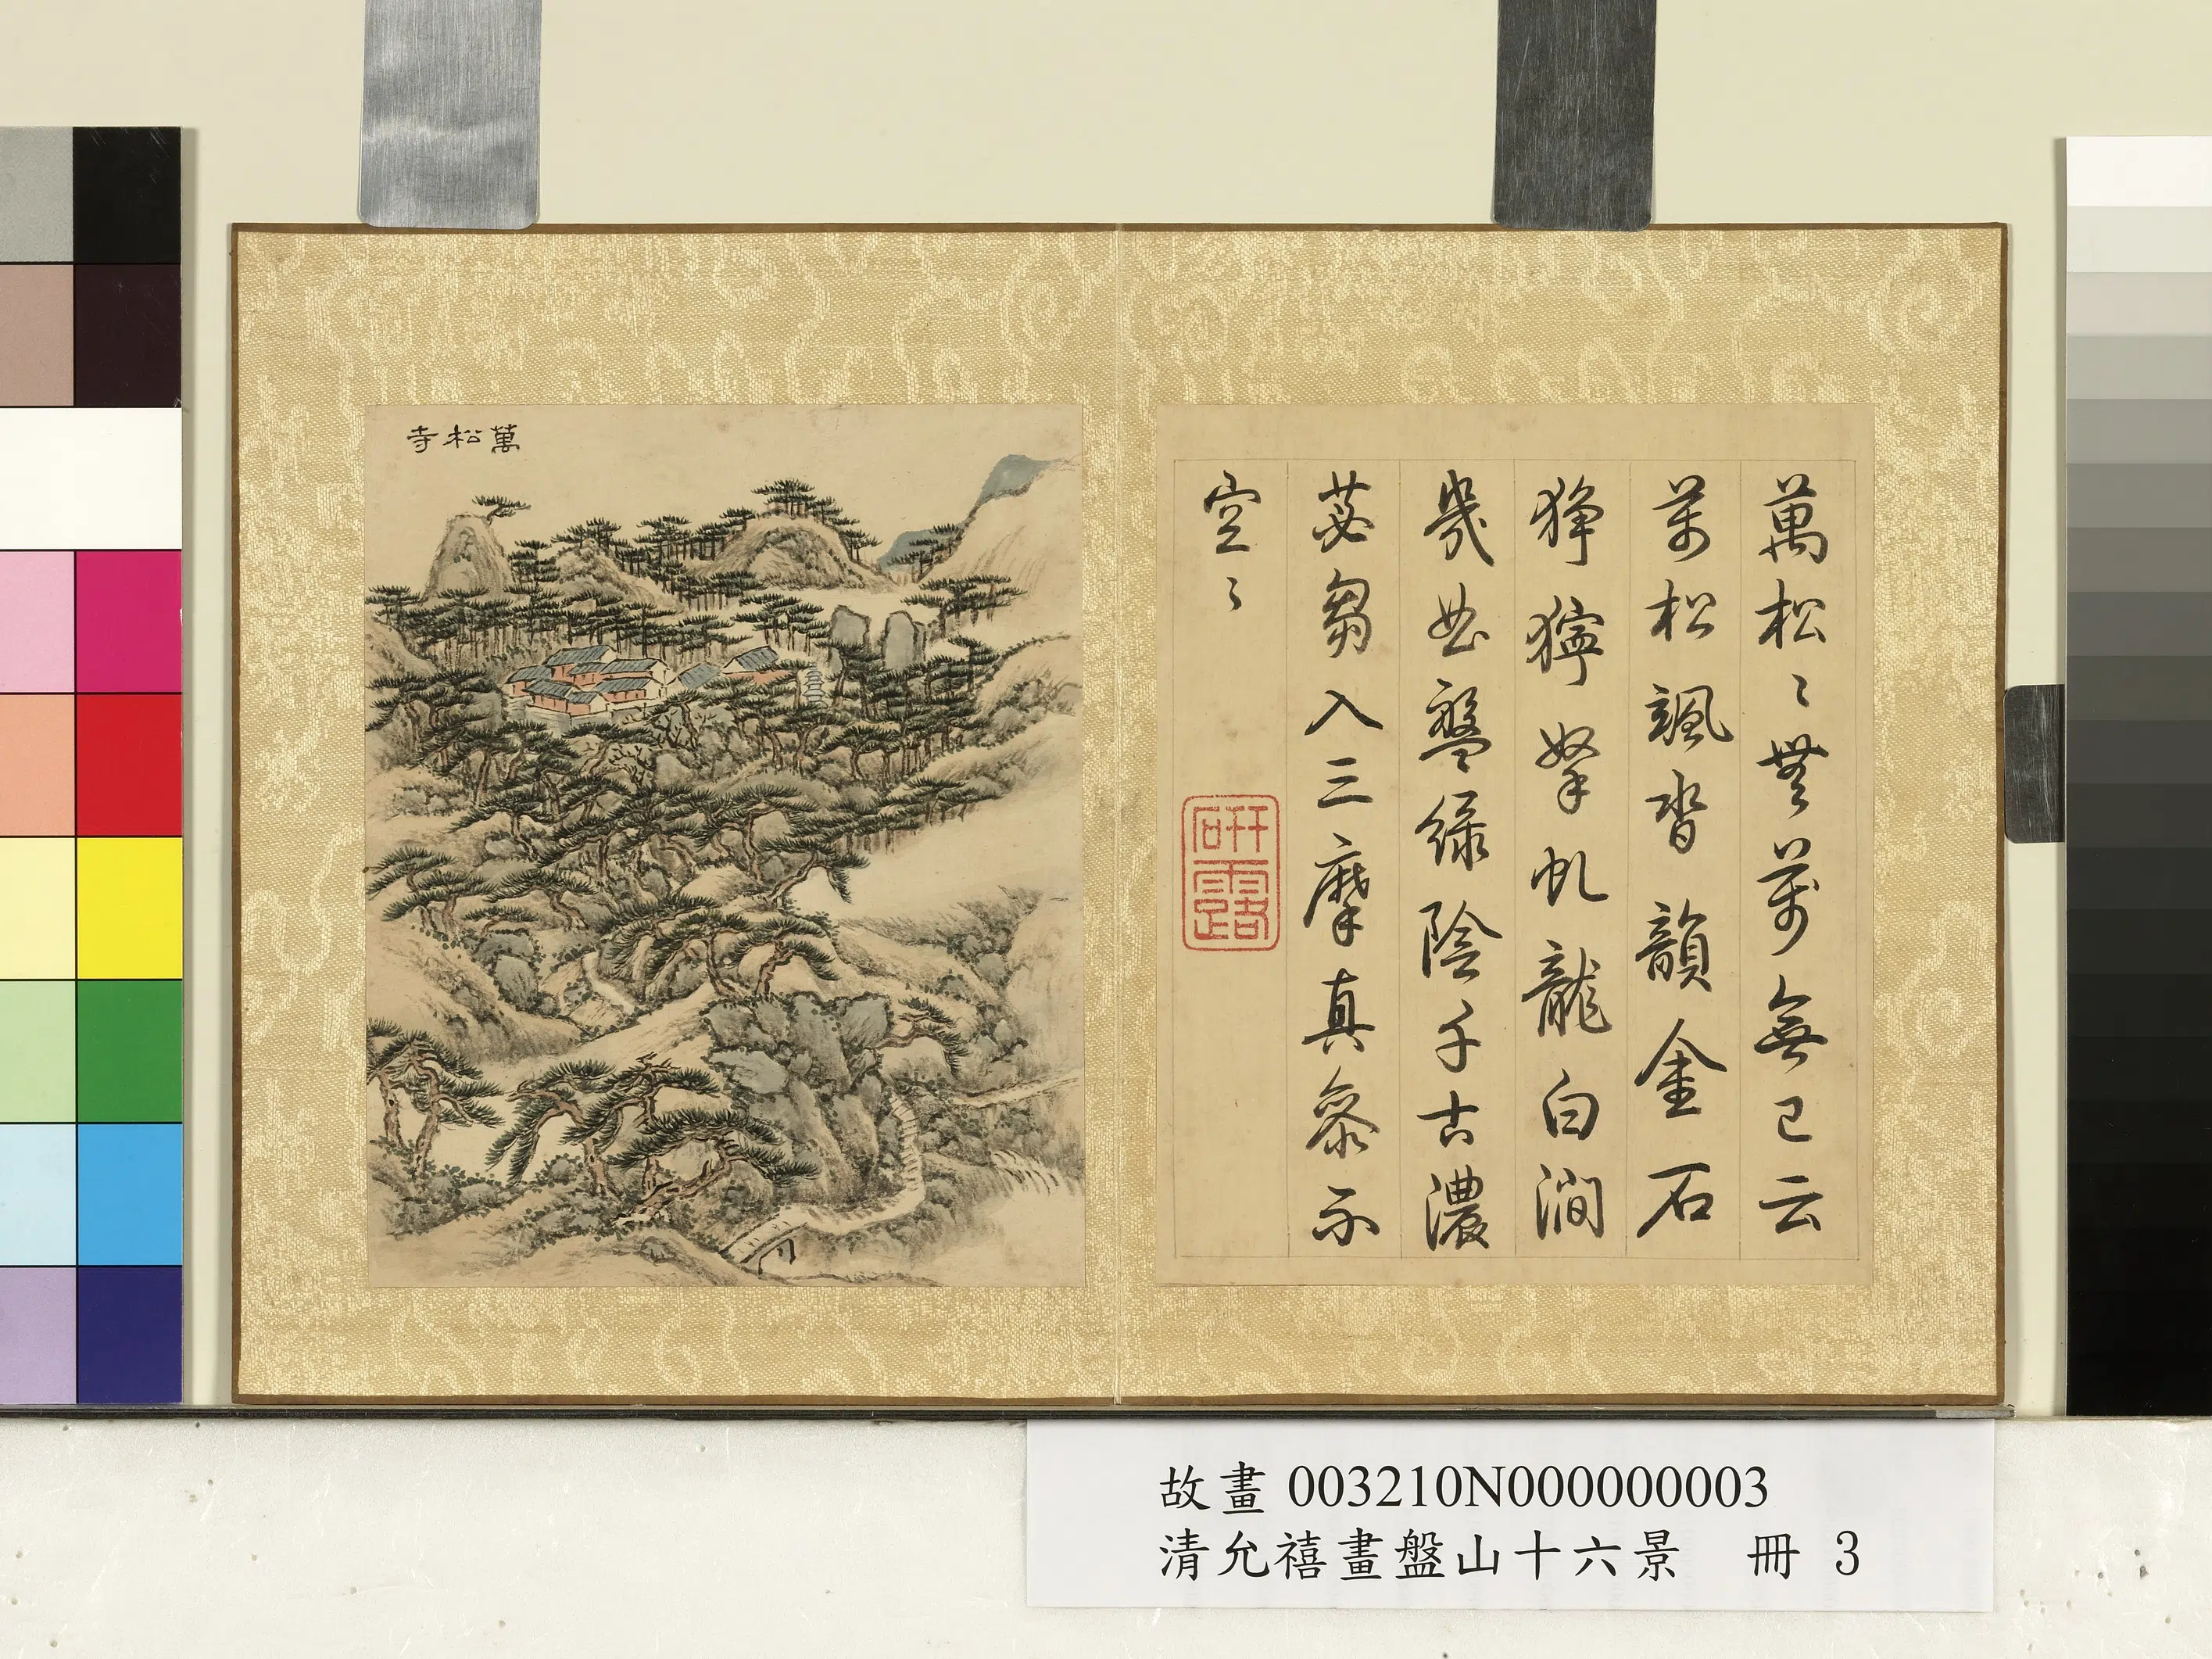 萬松寺
萬松〻無萬無已云
萬松颯沓韻金石
狰獰拏虬龍白澗
幾曲盤綠陰千古濃
苾芻入三摩真叅示
空〻
研露
故畫 003210N000000003
清允禧畫盤山十六景 冊 3